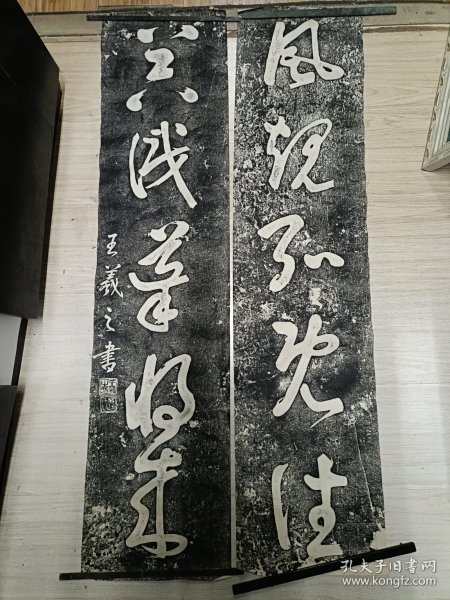 風規弘既往
將來
王羲之書
孔夫子旧书网
www.kongfz.com